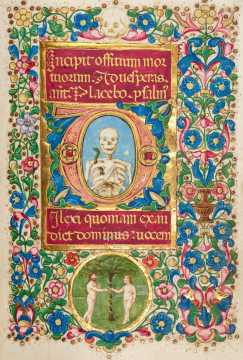 Incipit offitium mor
tuorum. Ad vesperas.
ant. Placebo. psalm
Dilexi quoniam exau
diet dominus vocem